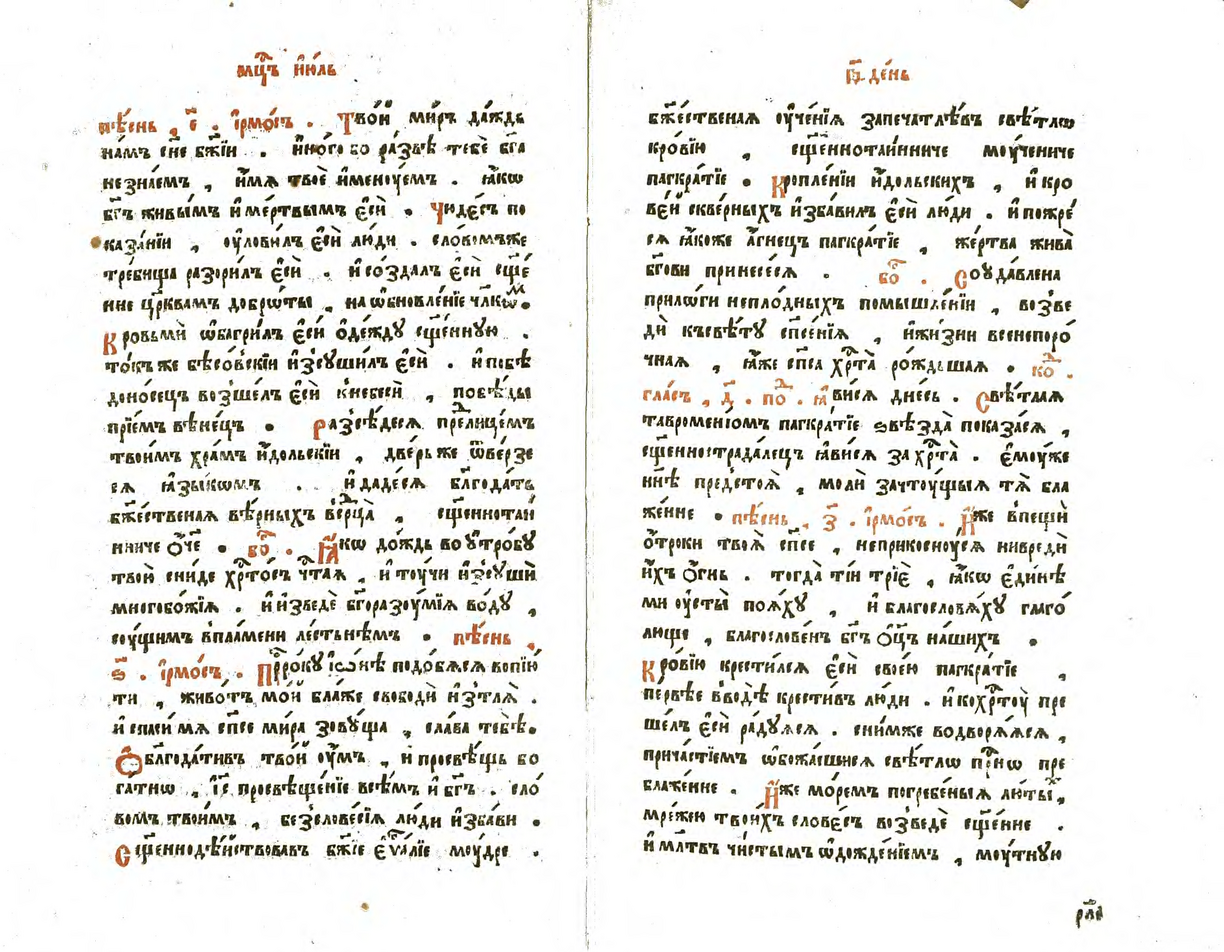 мц҃ъ їю́ль
пѣ́снь , є҃ . їрмо́съ . Тво́й ми́ръ да́ждь
на́мъ сн҃е бж҃їи . и҆но́го бо ра́звѣ тебѐ бг҃а
незна́емъ , и҆́мѧ твоѐ и҆менꙋ́емъ . ꙗ҆́кѡ
бг҃ъ живы́мъ и҆ ме́ртвымъ є҆сѝ . Чюде́съ по
каза́нїи , оу҆лови́лъ є҆сѝ лю́ди . сло́вомъже
тре́бища разори́лъ є҆сѝ . и҆ со́здалъ є҆сѝ сщ҃е́
нне цр҃квамъ добрѡ́ты , на ѡ҆бновле́нїе чл҃кѡм .
Кро́вьми ѡ҆багри́лъ є҆сѝ ѻ҆де́ждꙋ сщ҃е́ннꙋю .
то́къ же бѣсо́вскїи и҆зсꙋши́лъ є҆сѝ . и҆ побѣ
доно́сецъ возше́лъ є҆сѝ к̾небесѝ , побѣ́ды
прїе́мъ вѣне́цъ . Разсѣ́десѧ пред̾лице́мъ
твои́мъ хра́мъ и҆́дольскїи , две́рь же ѿве́рзе
сѧ ꙗ҆зы́кѡмъ . и҆ даде́сѧ бл҃года́ть
бж҃е́ственаѧ вѣ́рныхъ в̾ сердца̀ , сщ҃еннотаи
нниче ѻ҆́ч҃е . бо҃ . Ꙗ҆́кѡ до́ждь во оу҆тро́бꙋ
твою̀ сни́де хрⷭ҇то́съ чⷭ҇таѧ , и҆ тоу́чи и҆зсꙋшѝ
многобо́жїѧ . и҆ и҆зведѐ бг҃оразоу́мїѧ во́дꙋ ,
соу́щимъ в̾пла́мени ле́стьнѣмъ . пѣ́снь ,
ѕ҃ . їрмо́съ . Прⷪ҇ро́кꙋ їѡ́нѣ подо́бѧсѧ вопїю́
ти , живо́тъ мо́й бла́же свободѝ и҆з̾тлѧ̀ .
и҆ спаси́ мѧ сп҃се ми́ра зовꙋ́ща , сла́ва тебѣ̀ .
Ѡ҆бл҃года́тивъ тво́й оу҆́мъ , и҆ просвѣ́щь бо
га́тнѡ , і҆с҃ просвѣще́нїе всѣ́мъ и҆ бг҃ъ . сло́
вомъ твои́мъ , безслове́сїѧ лю́ди и҆зба́ви .
Сщ҃еннодѣ́йствовавъ бж҃їе є҆ѵⷢ҇а́лїе моу́дре .
г҃ де́нь
бж҃е́ственаѧ оу҆че́нїѧ запечатлѣ́въ свѣ́тлѡ
кро́вїю , сщ҃еннотаи́нниче моу́чениче
пагкра́тїе . Кропле́нїи и҆́дольскихъ , и҆ кро
ве́й скве́рныхъ и҆зба́вилъ є҆сѝ лю́ди . и҆ пожре́
сѧ ꙗ҆́коже а҆́гнецъ пагкра́тїе , же́ртва жива̀
бг҃ови принесе́сѧ . бо҃ . Соуда́влена
прило́ги непло́дныхъ помышле́нїи , возве
дѝ къ свѣ́тꙋ сп҃се́нїѧ , и҆ жи́зни всенепоро́
чнаѧ , ꙗ҆́же сп҃са хрⷭ҇та̀ ро́ждьшаѧ . ко҃ .
гла́съ , д҃ . по҃ . ꙗ҆ви́сѧ дне́сь . Свѣ́тлаѧ
тавромені́омъ пагкра́тїе ѕвѣзда̀ показа́сѧ ,
сщ҃еннострада́лецъ ꙗ҆ви́сѧ за хрⷭ҇та̀ . є҆моу́же
нн҃ѣ предстоѧ̀ , молѝ зачтоу́щыѧ тѧ̀ бла
же́нне . пѣ́снь , з҃ . їрмо́съ . И҆́же в̾ пещѝ
ѻ҆́троки твоѧ̀ сп҃се , неприкосноу́сѧ нивредѝ
и҆́хъ ѻ҆́гнь . тогда̀ ті́и трїѐ , ꙗ҆́кѡ є҆ди́нѣ
ми оу҆сты̀ поѧ́хꙋ , и҆ благословѧ́хꙋ глаго́
люще , благослове́нъ бг҃ъ ѻ҆ц҃ъ на́шихъ .
Кро́вїю крести́лсѧ є҆сѝ свое́ю пагкра́тїе ,
пе́рвѣе в̾водѣ̀ крести́въ лю́ди . и҆ ко хрⷭ҇тоу̀ пре
ше́лъ є҆сѝ ра́дꙋѧсѧ . сни́мже водворѧ́ѧсѧ ,
прича́стїемъ ѡ҆божа́ешисѧ свѣ́тлѡ при́снѡ пре
блаже́нне . И҆́же мо́ремъ погребе́ныѧ лю́тых ,
мре́жею твои́хъ слове́съ возведѐ сщ҃е́нне .
и҆ мл҃твъ чи́стымъ ѡ҆дожде́нїемъ , моу́тнꙋю
рл҃а